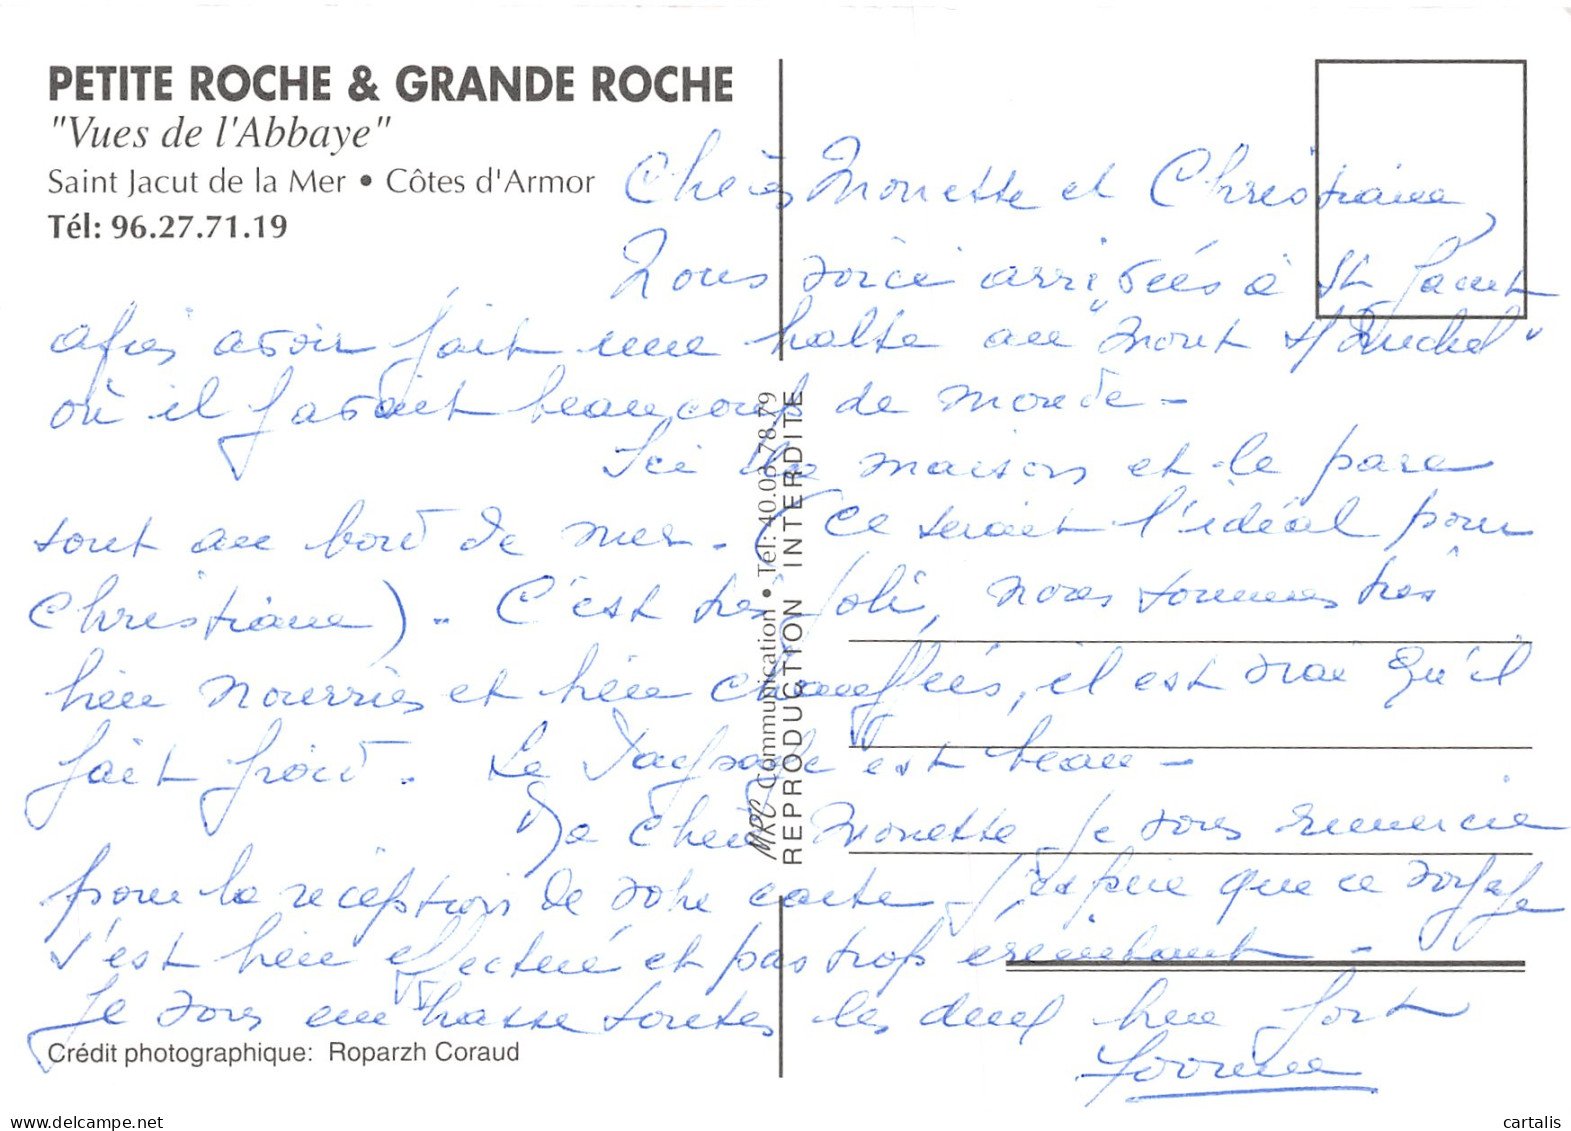 PETITE ROCHE & GRANDE ROCHE
"Vues de l'Abbaye"
Saint Jacut de la Mer • Côtes d'Armor
Tél: 96.27.71.19
Chères Monette et Christiane,
Nous voici arrivées à St Jacut
après avoir fait une halte au "Mont St Michel"
où il y avait beaucoup de monde -
Ici la maison et le parc
sont au bord de mer - ( ce serait l'idéal pour
Christiane ) - C'est très joli, nous sommes très
bien nourries et bien chauffées, il est vrai qu'il
fait froid. Le paysage est beau -
Ma chère Monette je vous remercie
pour la réception de votre carte - J'espère que ce voyage
s'est bien effectué et pas trop éreintant -
Je vous embrasse toutes les deux bien fort
MRC Communication • Tél: 40.03.78.79
REPRODUCTION INTERDITE
Crédit photographique: Roparzh Coraud
cartalis